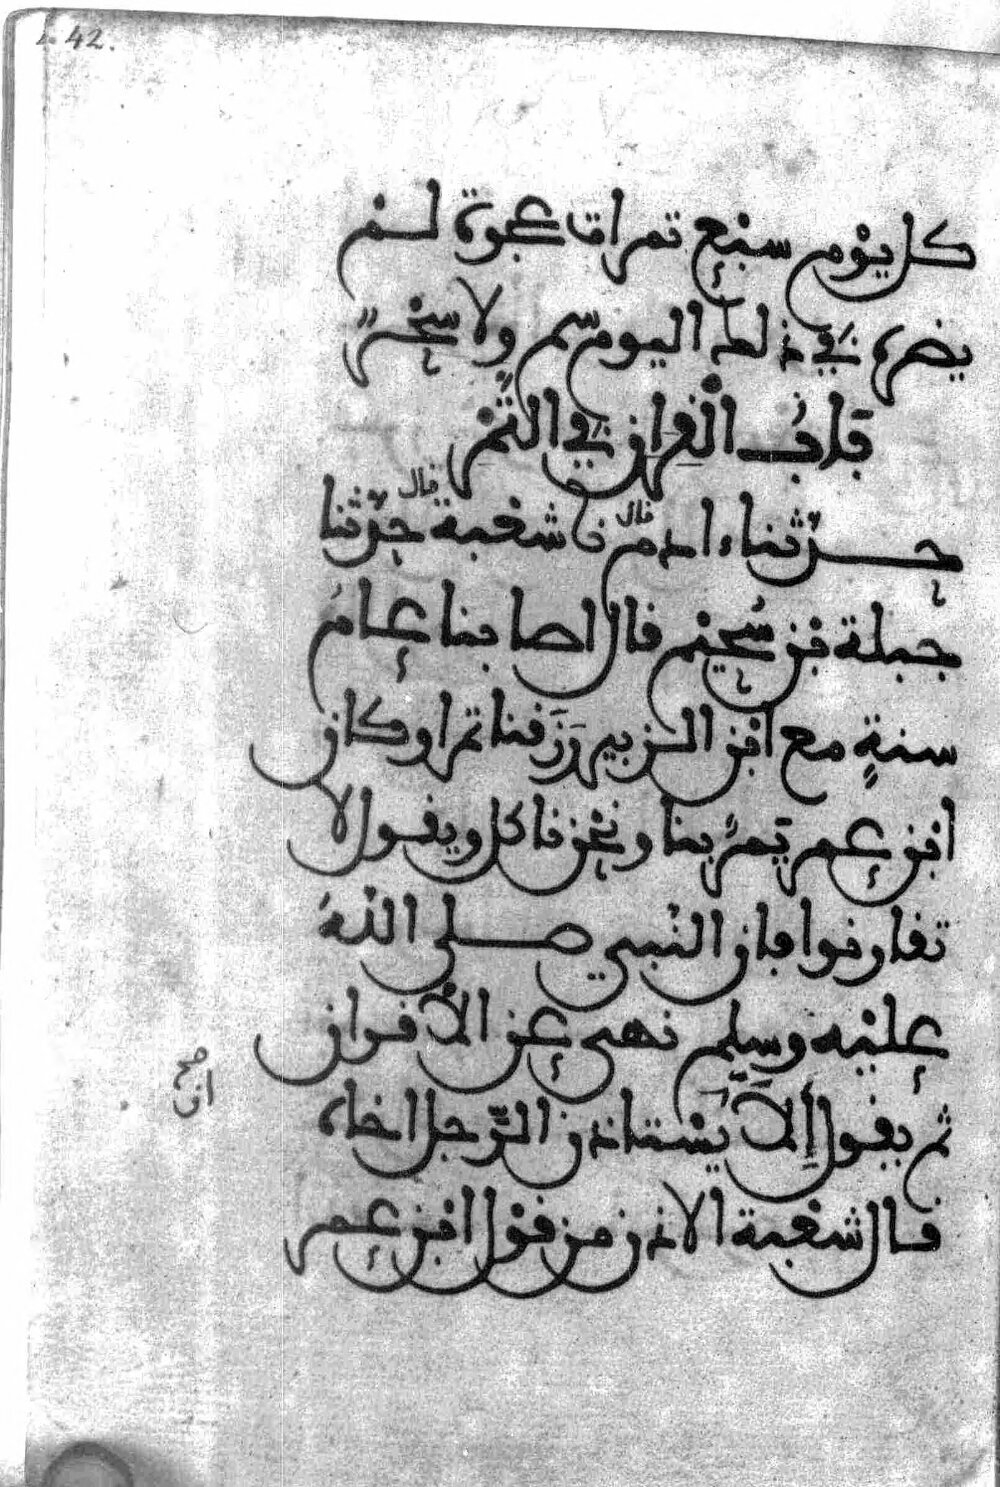 L. 42.
كل يوم سبع تمرات عجوة لم
يضره في ذلك اليوم سم ولا سحر
باب القران في التمر
حدثنا ءادم قال نا شعبة قال حدثنا
جبلة بن سحيم قال اصابنا عام
سنة مع ابن الزبير رزقنا تمرا وكان
ابن عمر يمر بنا ونحن ناكل ويقول لا
تقارنوا فان النبي صلى الله
عليه وسلم نهى عن الاقران
ثم يقول الا يستاذن الرجل اخاه
ان صح
قال شعبة الاذن من قول ابن عمر